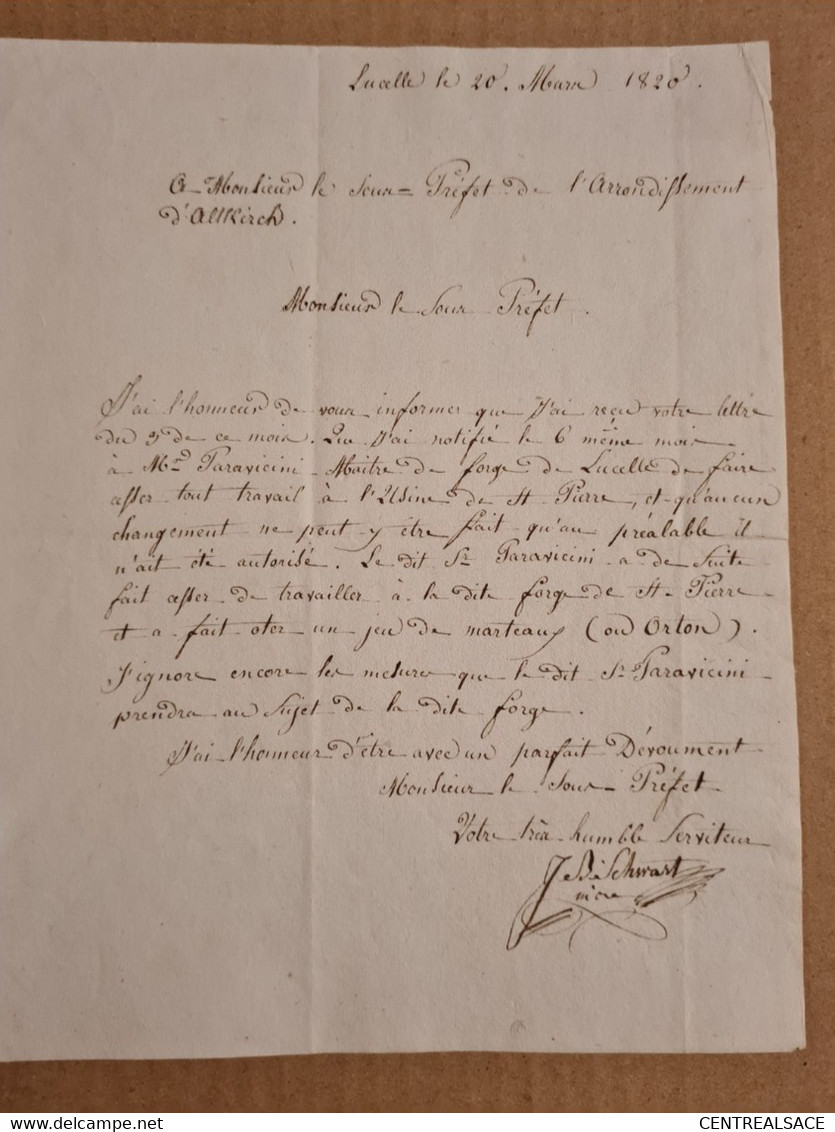 Lucelle le 20. Mars 1820.
A Monsieur le Sous-Préfet de l'Arrondissement
d'Altkirch.
Monsieur le Sous Préfet.
J'ai l'honneur de vous informer que J'ai reçu votre lettre
du 3 de ce mois. Que J'ai notifié le 6 même mois
à Mr Paravicini Maitre de forge de Lucelle de faire
cesser tout travail à l'Usine de St Pierre, et qu'aucun
changement ne peut y être fait qu'au préalable il
n'ait été autorisé. Le dit Sr Paravicini a de Suite
fait cesser de travailler à la dite forge de St Pierre
et a fait oter un jeu de marteaux (ou Orton).
J'ignore encore les mesures que le dit Sr Paravicini
prendra au Sujet de la dite forge.
J'ai l'honneur d'être avec un parfait Dévoument
Monsieur le Sous-Préfet
Votre très humble Serviteur
J Bte Schwart
CENTREALSACE